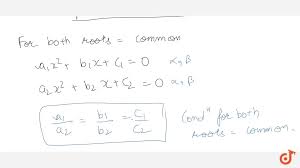 For both roots = common
a₁x² + b₁x + c₁ = 0 α, β
a₂x² + b₂x + c₂ = 0 α, β
a₁/a₂ = b₁/b₂ = c₁/c₂ Condⁿ for both
roots = common.